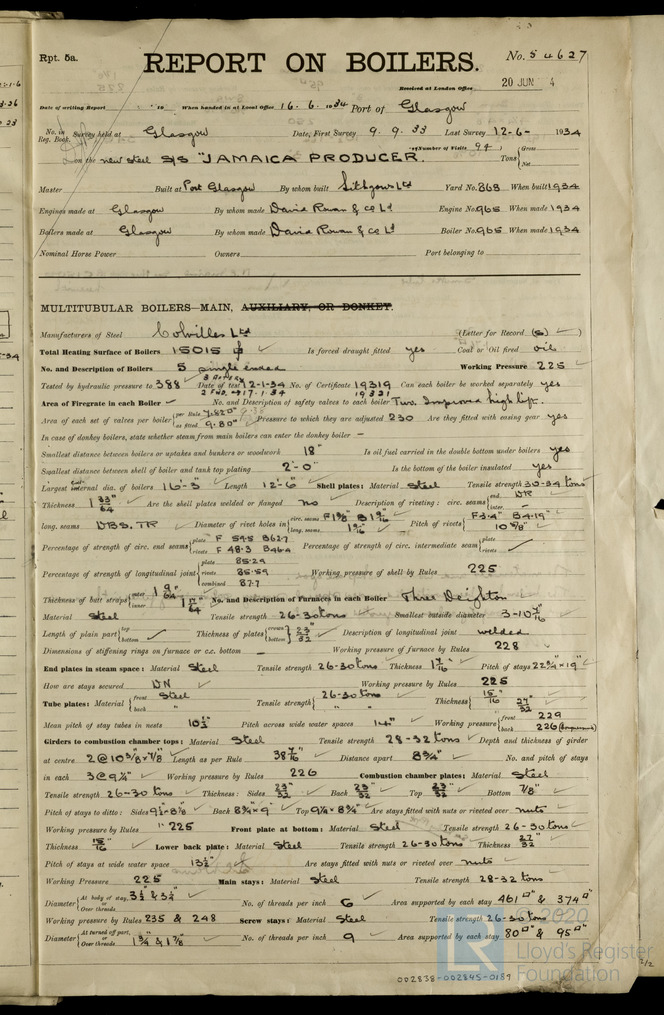 Rpt. 5a.
REPORT ON BOILERS.
No. 54627
Received at London Office 20 JUN 4
Date of writing Report 19 When handed in at Local Office 16.6.1934 Port of Glasgow
No. in Reg. Book. Survey held at Glasgow Date, First Survey 9.9.33 Last Survey 12-6- 1934
on the new steel S/S "JAMAICA PRODUCER. (Number of Visits 94) Tons {Gross Net
Master Built at Port Glasgow By whom built Lithgows Ltd Yard No. 868 When built 1934
Engines made at Glasgow By whom made David Rowan & Co Ld Engine No. 965 When made 1934
Boilers made at Glasgow By whom made David Rowan & Co Ld Boiler No. 965 When made 1934
Nominal Horse Power Owners Port belonging to
MULTITUBULAR BOILERS—MAIN, AUXILIARY, OR DONKEY.
Manufacturers of Steel Colvilles Ltd (Letter for Record (S) ✓)
Total Heating Surface of Boilers 15015 ✓ Is forced draught fitted yes Coal or Oil fired oil
No. and Description of Boilers 5 single ended Working Pressure 225
Tested by hydraulic pressure to 388 Date of test 12-1-34 No. of Certificate 19319 Can each boiler be worked separately yes
2 Fwd 17.1.34 19321
Area of Firegrate in each Boiler – No. and Description of safety valves to each boiler Two Improved high lift.
Area of each set of valves per boiler {per Rule 7.820" as fitted 9.80" Pressure to which they are adjusted 230 Are they fitted with easing gear yes
In case of donkey boilers, state whether steam from main boilers can enter the donkey boiler –
Smallest distance between boilers or uptakes and bunkers or woodwork 18" Is oil fuel carried in the double bottom under boilers yes
Smallest distance between shell of boiler and tank top plating 2'-0" Is the bottom of the boiler insulated yes
Largest internal dia. of boilers 16'-3" Length 12'-6" Shell plates: Material Steel Tensile strength 30-34 tons
Thickness 1 33/64" Are the shell plates welded or flanged no Description of riveting: circ. seams {end DR inter. –
long. seams DBS. TR Diameter of rivet holes in {circ. seams F 1 5/8" B 1 9/16" long. seams 1 9/16" Pitch of rivets {F 3.4" B 4.19" 10 5/8"
Percentage of strength of circ. end seams {plate F 59.5 B 62.7 rivets F 48.3 B 46.4 Percentage of strength of circ. intermediate seam {plate rivets
Percentage of strength of longitudinal joint {plate 85.29 rivets 85.59 combined 87.7 Working pressure of shell by Rules 225
Thickness of butt straps {outer 1 9/64 inner 1 17/64" No. and Description of Furnaces in each Boiler Three Deighton
Material Steel Tensile strength 26-30 tons Smallest outside diameter 3-10 7/16"
Length of plain part {top bottom Thickness of plates {crown bottom 23/32" Description of longitudinal joint welded
Dimensions of stiffening rings on furnace or c.c. bottom – Working pressure of furnace by Rules 228
End plates in steam space: Material Steel Tensile strength 26-30 tons Thickness 1 7/16" Pitch of stays 22 3/4" x 19"
How are stays secured DN Working pressure by Rules 225
Tube plates: Material {front Steel back " Tensile strength {26-30 tons " " Thickness {15/16" 27/32"
Mean pitch of stay tubes in nests 10 1/2" Pitch across wide water spaces 14" Working pressure {front 229 back 226 (Compression)
Girders to combustion chamber tops: Material Steel Tensile strength 28-32 tons Depth and thickness of girder
at centre 2 @ 10 3/8" x 7/8" Length as per Rule 38 7/16" Distance apart 8 3/4" No. and pitch of stays
in each 3 @ 9 1/4" Working pressure by Rules 226 Combustion chamber plates: Material Steel
Tensile strength 26-30 tons Thickness: Sides 23/32" Back 23/32" Top 23/32" Bottom 7/8"
Pitch of stays to ditto: Sides 9 1/4" x 8 5/8" Back 8 3/4" x 9" Top 9 1/4" x 8 3/4" Are stays fitted with nuts or riveted over nuts
Working pressure by Rules 225 Front plate at bottom: Material Steel Tensile strength 26-30 tons
Thickness 15/16" Lower back plate: Material Steel Tensile strength 26-30 tons Thickness 27/32"
Pitch of stays at wide water space 13 1/2" Are stays fitted with nuts or riveted over nuts
Working Pressure 225 Main stays: Material Steel Tensile strength 28-32 tons
Diameter {At body of stay, or Over threads 3 1/2" & 3 1/4" No. of threads per inch 6 Area supported by each stay 461" & 374"
Working pressure by Rules 235 & 248 Screw stays: Material Steel Tensile strength 26-30 tons
Diameter {At turned off part, or Over threads 1 3/4" & 1 7/8" No. of threads per inch 9 Area supported by each stay 80" & 95"
© 2020
Lloyd's Register
Foundation
002838-002845-0189